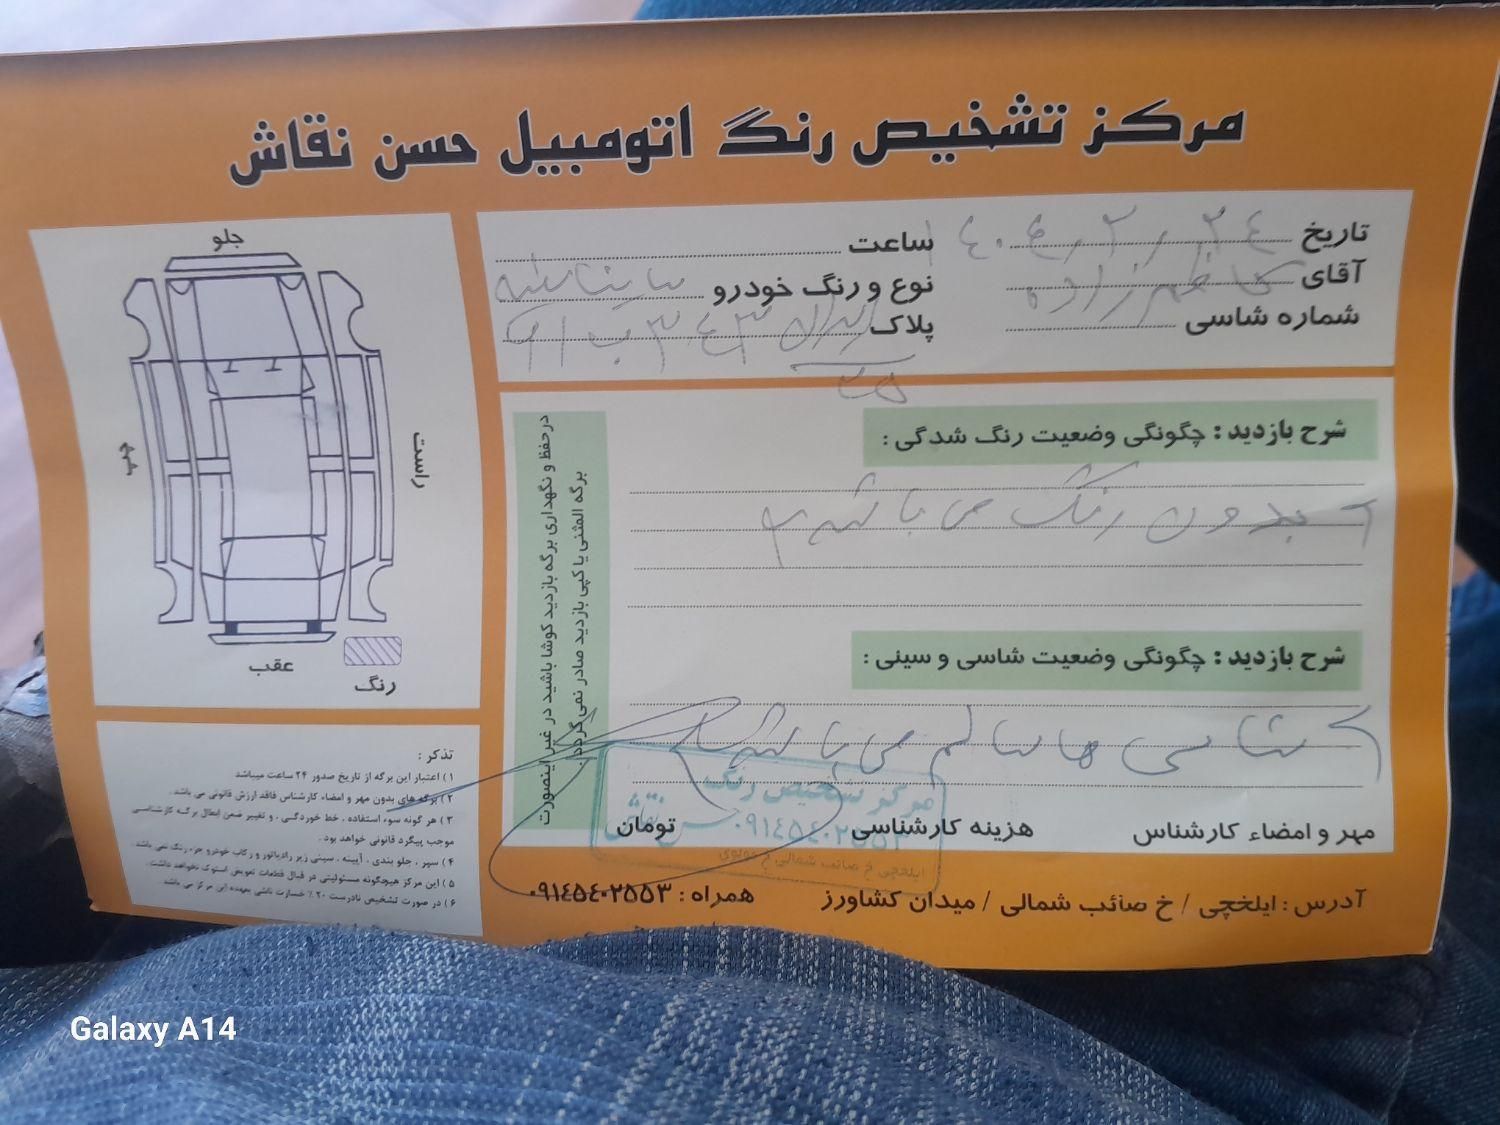 مرکز تشخیص رنگ اتومبیل حسن نقاش
تاریخ ۱۴۰۴٫۲٫۲۴ ساعت
آقای کاظم زاده نوع و رنگ خودرو ساینا سفید
شماره شاسی پلاک ایران ۳۴۳ ب ۹۱
۲۵
شرح بازدید : چگونگی وضعیت رنگ شدگی :
بدون رنگ می باشد
شرح بازدید : چگونگی وضعیت شاسی و سینی :
شاسی ها سالم می باشد
مهر و امضاء کارشناس هزینه کارشناسی تومان
مرکز تشخیص رنگ
حسن نقاش ۰۹۱۴۵۴۰۲۵۵۳
ایلخچی خ صائب شمالی خ مولوی
آدرس : ایلخچی / خ صائب شمالی / میدان کشاورز همراه : ۰۹۱۴۵۴۰۲۵۵۳
درحفظ و نگهداری برگه بازدید کوشا باشید در غیر اینصورت
برگه المثنی یا کپی بازدید صادر نمی گردد
جلو
راست
چپ
عقب
رنگ
تذکر :
۱) اعتبار این برگه از تاریخ صدور ۲۴ ساعت میباشد
۲) برگه های بدون مهر و امضاء کارشناس فاقد ارزش قانونی می باشد .
۳) هر گونه سوء استفاده ، خط خوردگی ، و تغییر ضمن ابطال برگه کارشناسی
موجب پیگرد قانونی خواهد بود .
۴) سپر ، جلو بندی ، آیینه ، سینی زیر رادیاتور و رکاب خودرو جزء رنگ نمی باشد .
۵) این مرکز هیچگونه مسئولیتی در قبال قطعات تعویض استوک نخواهد داشت .
۶) در صورت تشخیص نادرست ۲۰٪ خسارت ناشی بعهده این مرکز می باشد .
Galaxy A14